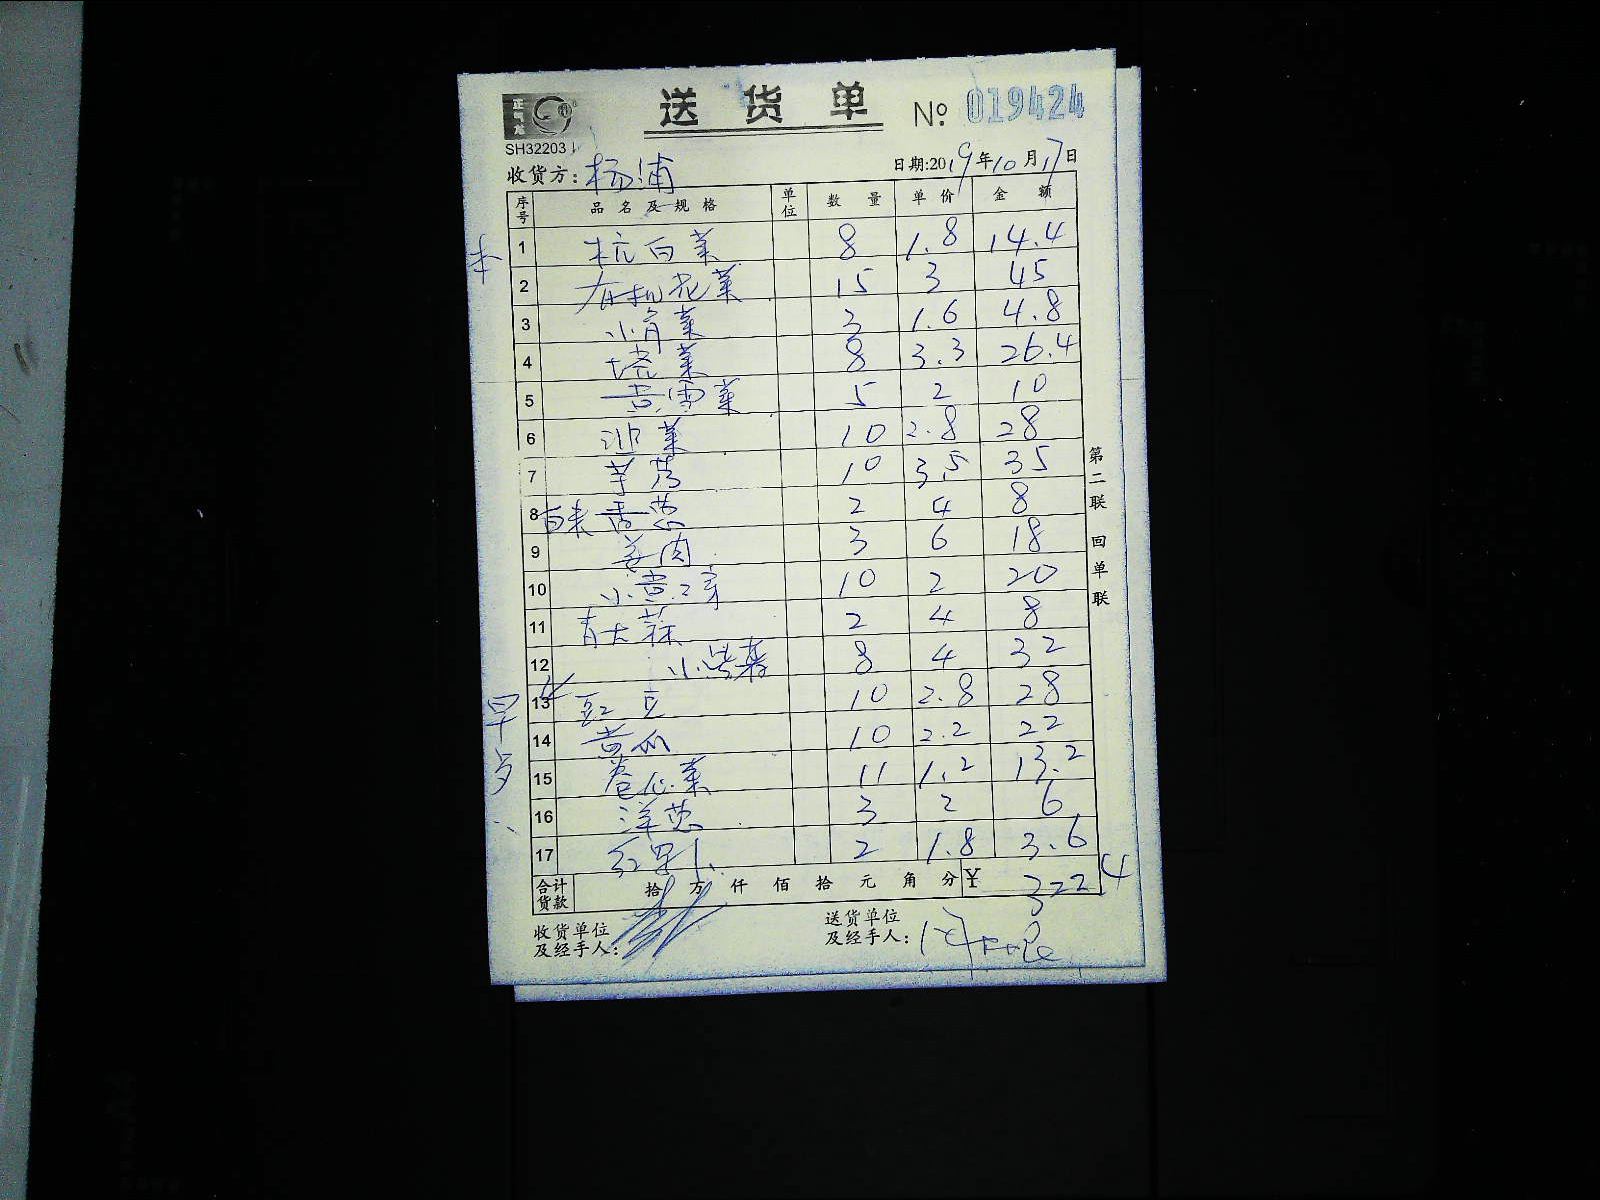 送货单 № 019424
SH32203
收货方: 杨浦 日期:2019年10月17日
序号 品名及规格 单位 数量 单价 金额
本
1 杭白菜 8 1.8 14.4
2 有机花菜 15 3 45
3 小青菜 3 1.6 4.8
4 塔菜 8 3.3 26.4
5 黄雪菜 5 2 10
6 菜 10 2.8 28
7 芋艿 10 3.5 35
8 香葱 2 4 8
9 姜肉 3 6 18
10 小黄芽 10 2 20
11 青大蒜 2 4 8
12 8 4 32
13 豇豆 10 2.8 28
14 黄瓜 10 2.2 22
15 卷心菜 11 1.2 13.2
16 洋葱 3 2 6
17 2 1.8 3.6
早
合计货款 拾万仟佰拾元角分 ¥ 322.4
收货单位及经手人:
送货单位及经手人:
第二联 回单联